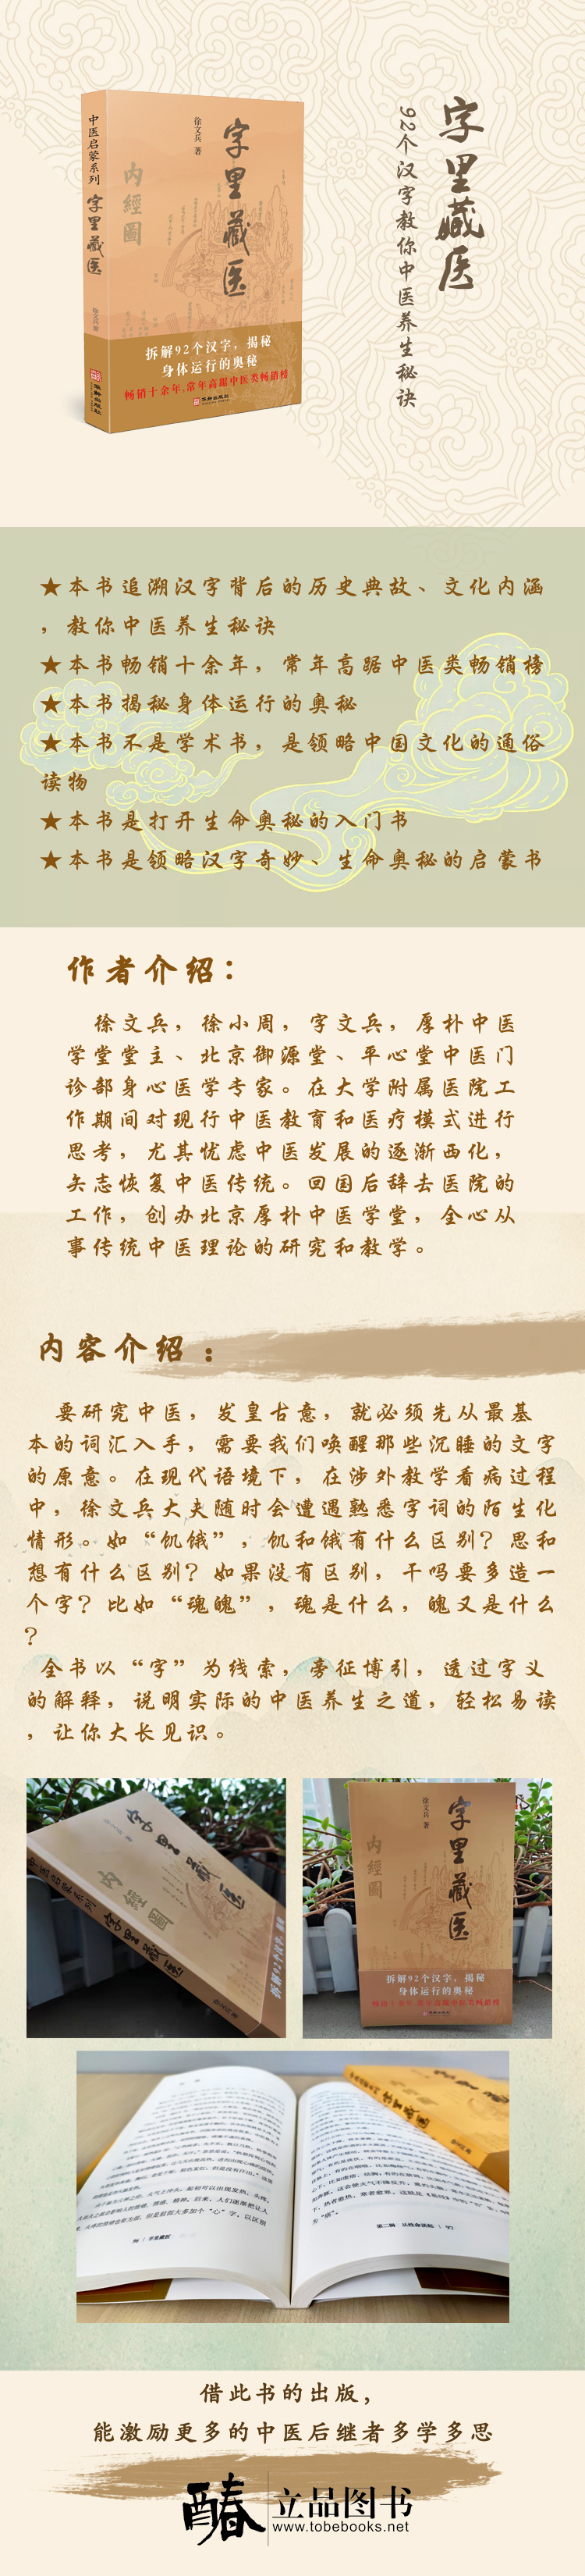 字里藏医
92个汉字教你中医养生秘诀
中医启蒙系列 字里藏医
徐文兵 著
徐文兵 著
字里藏医
内經圖
拆解92个汉字，揭秘
身体运行的奥秘
畅销十余年，常年高踞中医类畅销榜
华龄出版社
华龄出版社
★本书追溯汉字背后的历史典故、文化内涵
，教你中医养生秘诀
★本书畅销十余年，常年高踞中医类畅销榜
★本书揭秘身体运行的奥秘
★本书不是学术书，是领略中国文化的通俗
读物
★本书是打开生命奥秘的入门书
★本书是领略汉字奇妙、生命奥秘的启蒙书
作者介绍：
徐文兵，徐小周，字文兵，厚朴中医
学堂堂主、北京御源堂、平心堂中医门
诊部身心医学专家。在大学附属医院工
作期间对现行中医教育和医疗模式进行
思考，尤其忧虑中医发展的逐渐西化，
矢志恢复中医传统。回国后辞去医院的
工作，创办北京厚朴中医学堂，全心从
事传统中医理论的研究和教学。
内容介绍：
要研究中医，发皇古意，就必须先从最基
本的词汇入手，需要我们唤醒那些沉睡的文字
的原意。在现代语境下，在涉外教学看病过程
中，徐文兵大夫随时会遭遇熟悉字词的陌生化
情形。如“饥饿”，饥和饿有什么区别？思和
想有什么区别？如果没有区别，干吗要多造一
个字？比如“魂魄”，魂是什么，魄又是什么
？
全书以“字”为线索，旁征博引，透过字义
的解释，说明实际的中医养生之道，轻松易读
，让你大长见识。
字里藏医
内經圖
中医启蒙系列 字里藏医
徐文兵 著
字里藏医
内經圖
拆解92个汉字，揭秘
身体运行的奥秘
畅销十余年，常年高踞中医类畅销榜
96 | 字里藏医
第二辑 从性命谈起 | 97
借此书的出版，
能激励更多的中医后继者多学多思
立品图书
www.tobebooks.net